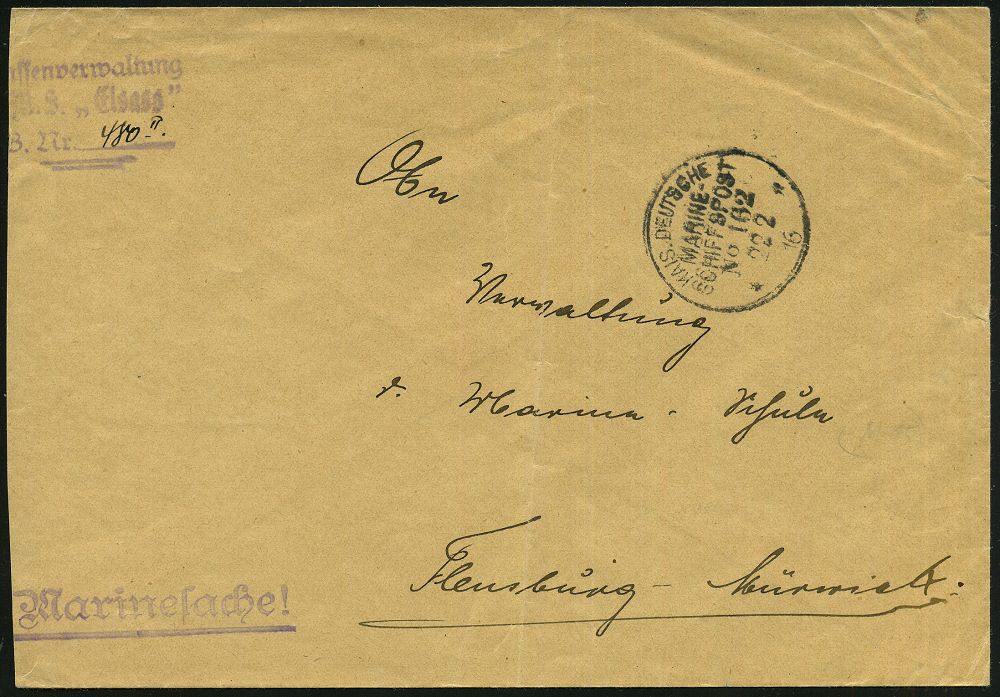 ssenverwaltung
M.S. „Elsass"
B. Nr. 480 II.
An
KAIS. DEUTSCHE
MARINE-
SCHIFFSPOST
No 162
22 2
16
Verwaltung
d. Marine-Schule
Flensburg-Mürwik.
Marinesache!